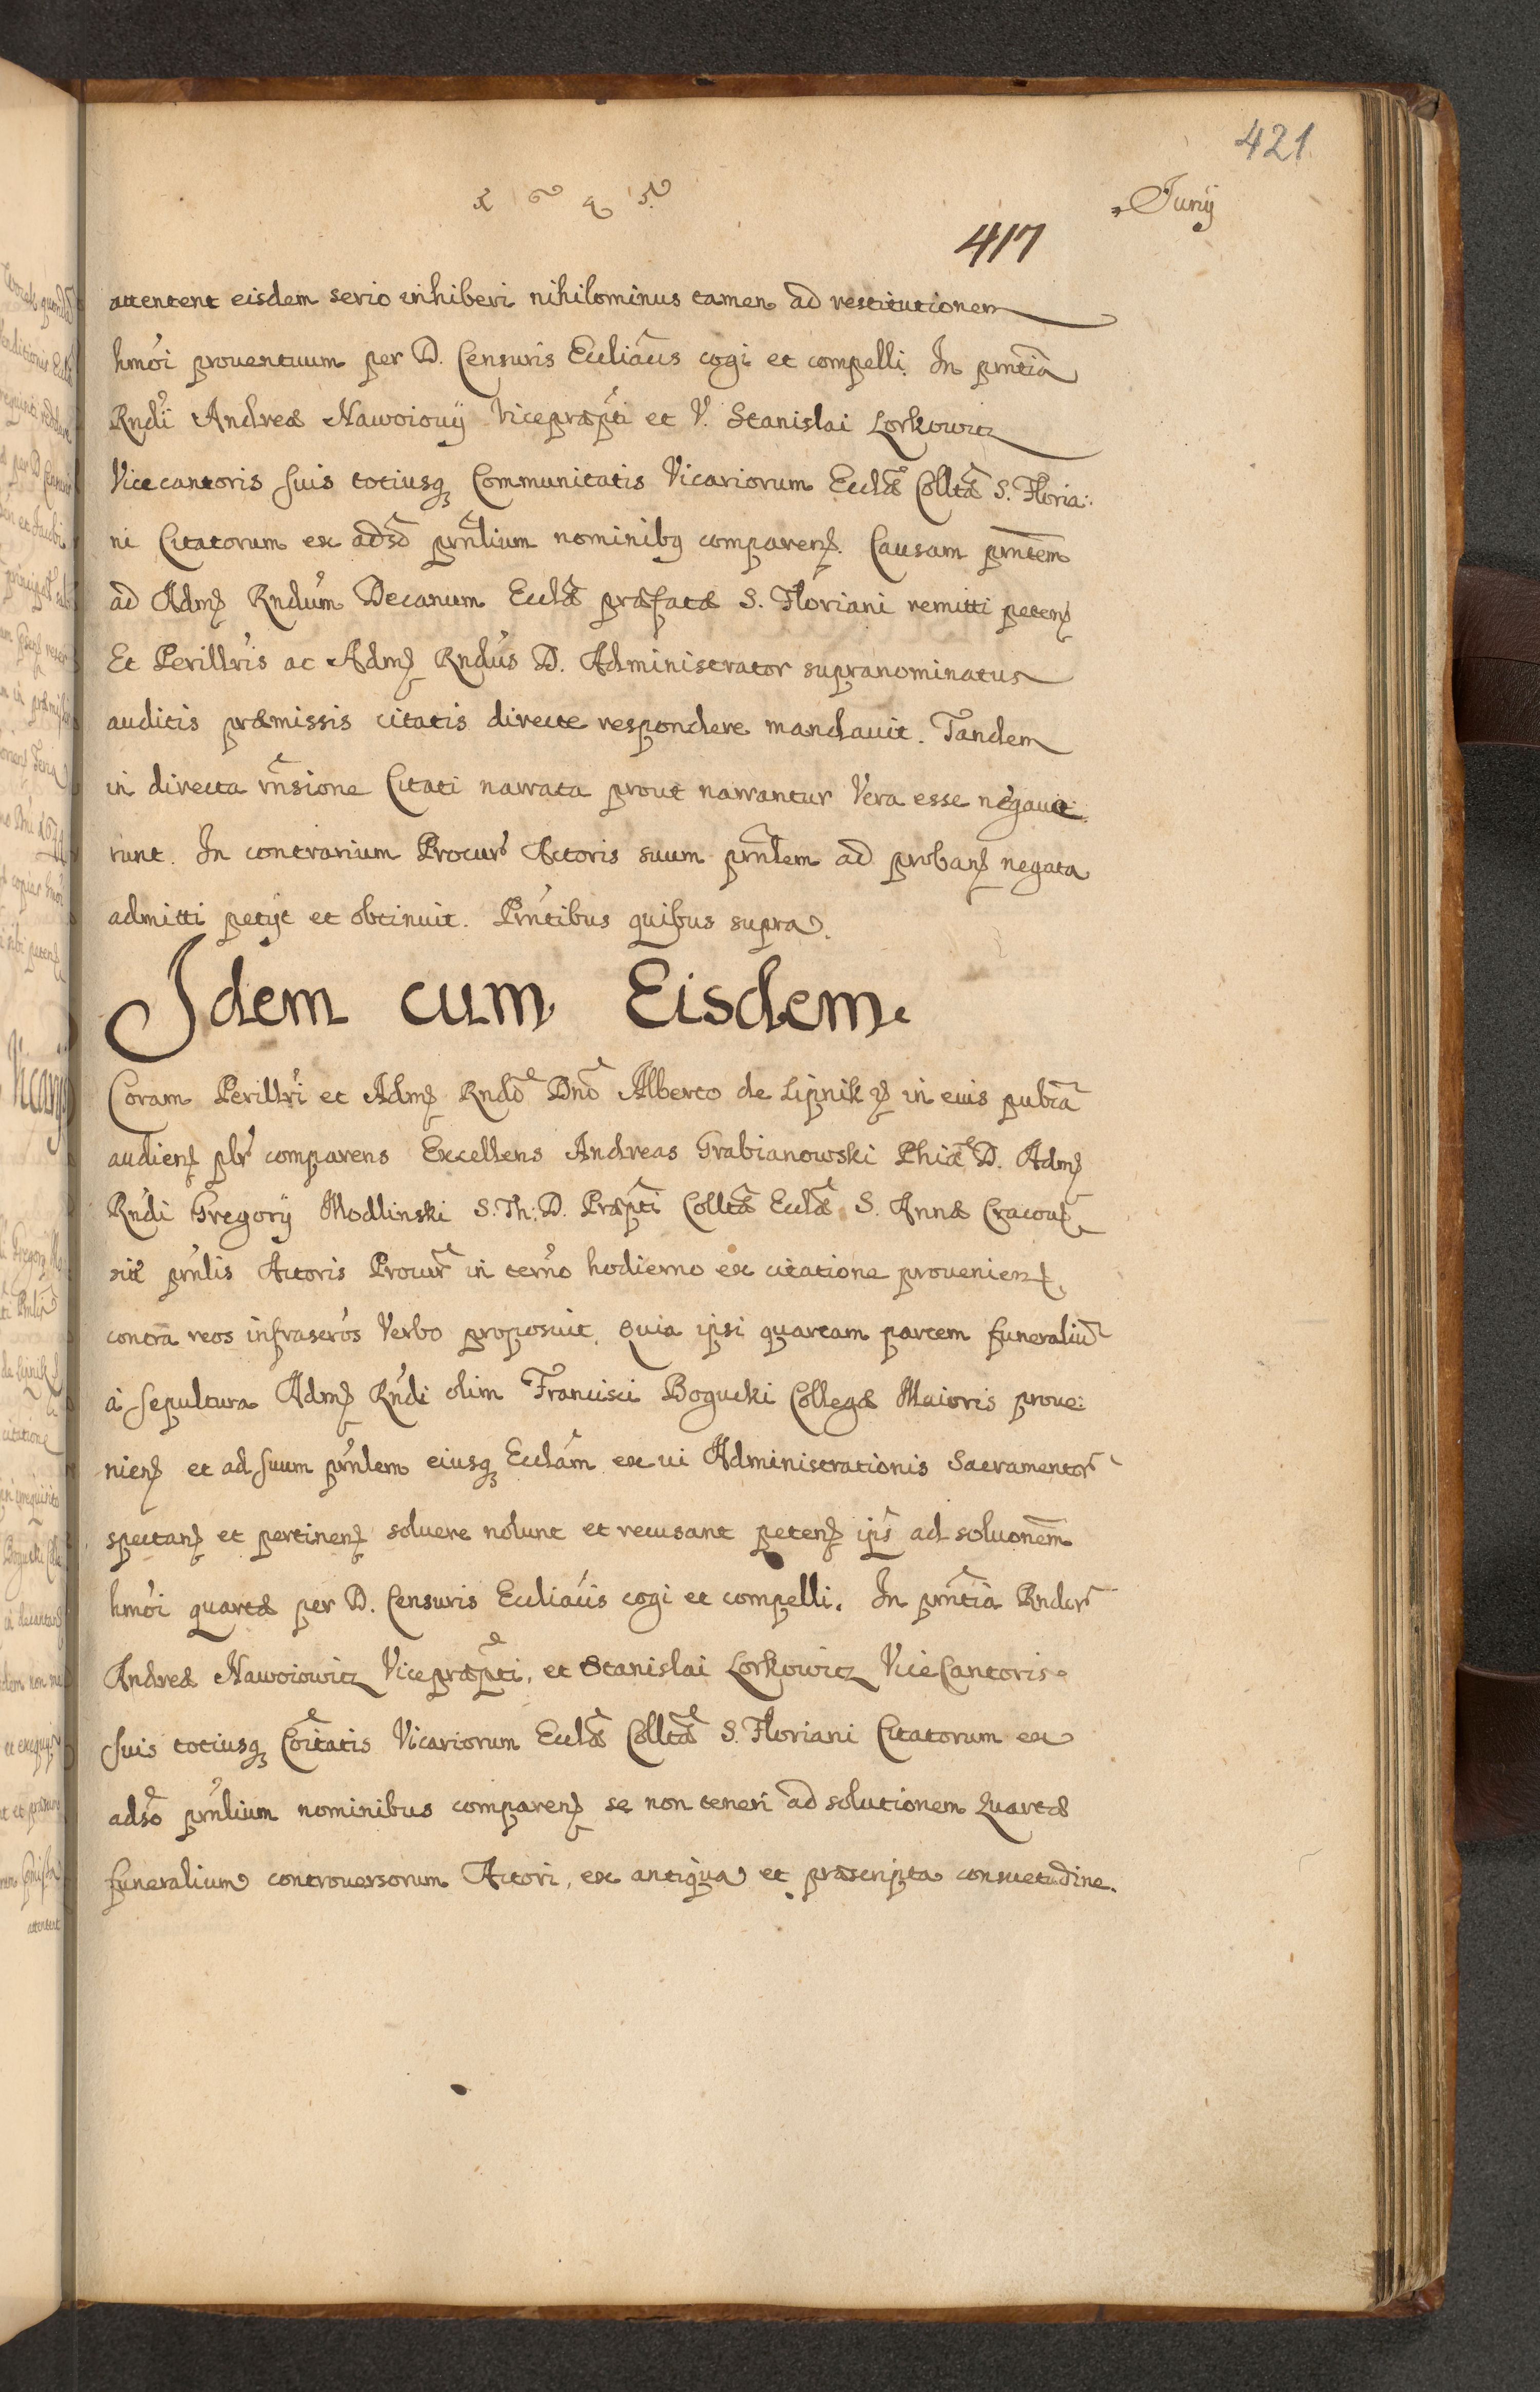 421
1645
Junÿ
417
attentent eisdem serio inhiberi nihilominus tamen ad restitutionem
hmoi prouentuum per D. Censuris Eccliãcis cogi et compelli. In prntia
Rndi Andreæ Nawoiouÿ Vicepræpti et V. Stanislai Lorkowicz
Vicecantoris suis totiusq Communitatis Vicariorum Ecclæ Colltæ S. Floria:
ni Citatorum ex adso prnlium nominibq comparen. Causam prntem
ad Adm Rndum Decanum Ecclæ præfatæ S. Floriani remitti peten
Et Perillris ac Adm Rndus D. Administrator supranominatus
auditis præmissis citatis directe respondere mandauit. Tandem
in directa rnsione Citati narrata prout narrantur Vera esse negaue:
runt. In contrarium Procur Actoris suum prnlem ad proban negata
admitti petÿt et obtinuit. Prntibus quibus supra.
Idem cum Eisdem.
Coram Perillri et Adm Rndo Dno Alberto de Lipnik in eius publca
audien plr comparens Excellens Andreas Grabianowski Phiæ D. Adm
Rndi Gregorÿ Modlinski S. Th: D. Præpti Colltæ Ecclæ S. Annæ Cracou
sui prnlis Actoris Procur in termo hodierno ex citatione prouenien
contra reos infrascros Verbo proposuit. Quia ipsi quartam partem funeraliu
a sepultura Adm Rndi olim Francisci Bogucki Collegæ Maioris proue:
nien et ad suum prnlem eiusq Ecclam ex ui Administrationis Sacramentor
spectan et pertinen soluere nolunt et recusant peten ips ad soluonem
hmoi quartæ per D. Censuris Eccliacis cogi et compelli. In prntia Rndor
Andreæ Nawoiowicz Vicepræpti, et Stanislai Lorkowicz ViceCantoris
suis totiusq Coitatis Vicariorum Ecclæ Colltæ S. Floriani Citatorum ex
adso prnlium nominibus comparen se non teneri ad solutionem Quartæ
funeralium controuersorum Actori, ex antiqua et præscripta consuetudine.